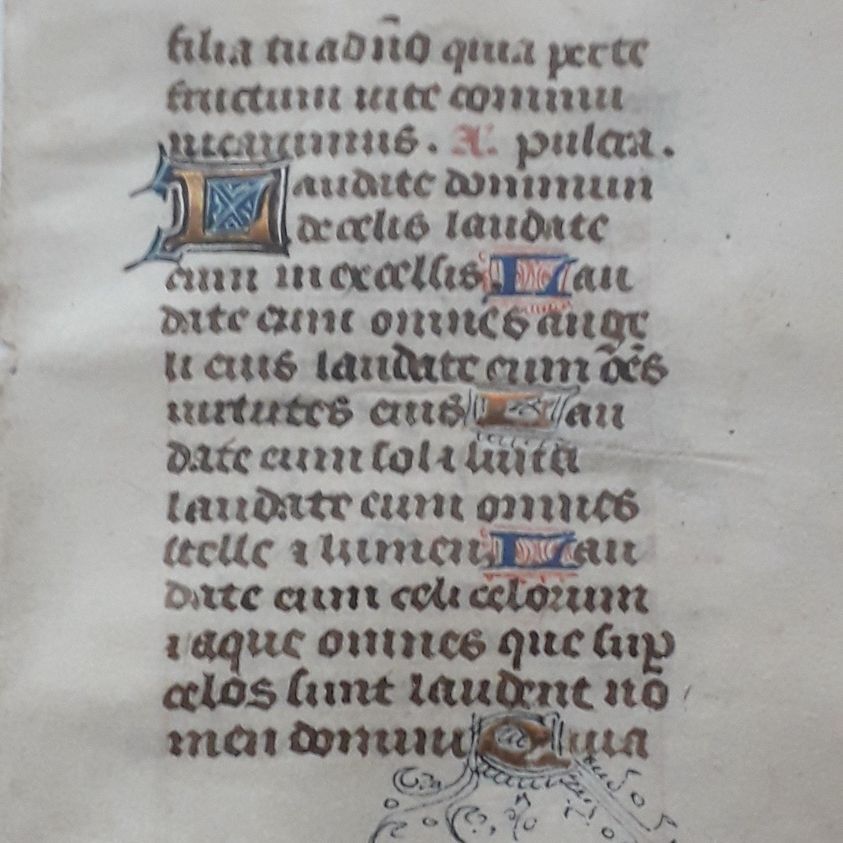 filia tu a dño quia per te
fructum vite commu
nicavimus. A. pulcra.
Laudate dominum
de celis laudate
eum in excelsis. Lau
date eum omnes ange
li eius laudate eum ões
virtutes eius Lau
date eum sol et luna
laudate eum omnes
stelle et lumen Lau
date eum celi celorum
et aque omnes que sup
celos sunt laudent no
men domini Quia